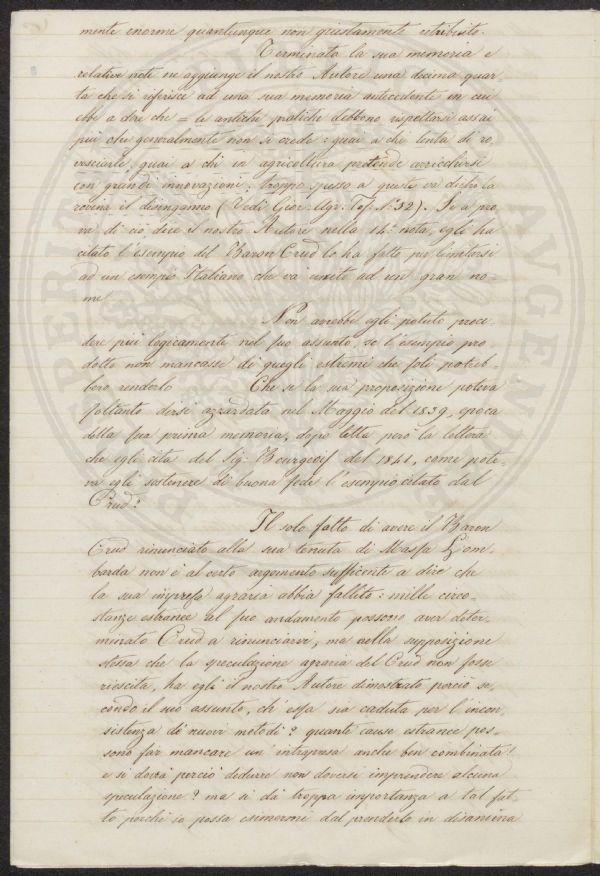 mente enorme quantunque non giustamente attribuito.
Terminata la sua memoria e
relative note ne aggiunge il nostro Autore una decima quar
ta che si riferisce ad una sua memoria antecedente in cui
ebbe a dire che = le antiche pratiche debbono rispettarsi assai
più che generalmente non si crede: guai a chi tenta di ro,
vesciarle, guai a chi in agricoltura pretende arricchirsi
con grandi innovazioni: troppo spesso a queste va dietro la
rovina il disinganno (Vedi Gior. Agr. Tos. N.° 52). Se a pro,
va di ciò, dice il nostro Autore nella 14.a nota, egli ha
citato l'esempio del Baron Crud lo ha fatto per limitarsi
ad un esempio Italiano che va unito ad un gran no-
me
Non avrebbe egli potuto proce-
dere più logicamente nel suo assunto, se l'esempio pro-
dotto non mancasse di quegli estremi che soli potreb-
bero renderlo Che se la sua proposizione poteva
soltanto dirsi azzardata nel Maggio del 1839, epoca
della sua prima memoria, dopo letta però la lettera
che egli cita del Sig. Bourgeois del 1841, come pote-
va egli sostenere di buona fede l'esempio citato dal
Crud?
Il solo fatto di avere il Baron
Crud rinunciato alla sua tenuta di Massa Lom-
barda non è al certo argomento sufficente a dire che
la sua impresa agraria abbia fallito: mille circo-
stanze estranee al suo andamento possono aver deter-
minato Crud a rinunciarvi, ma nella supposizione
stessa che la speculazione agraria del Crud non fosse
riescita, ha egli il nostro Autore dimostrato perciò se,
condo il suo assunto, ch'essa sia caduta per l'incon,
sistenza de' nuovi metodi? quante cause estranee pos-
sono far mancare un'intrapresa anche ben combinata!
e si dovrà perciò dedurre non doversi imprendere alcuna
speculazione? ma si dà troppa importanza a tal fat-
to perchè io possa esimermi dal prenderlo in disamina